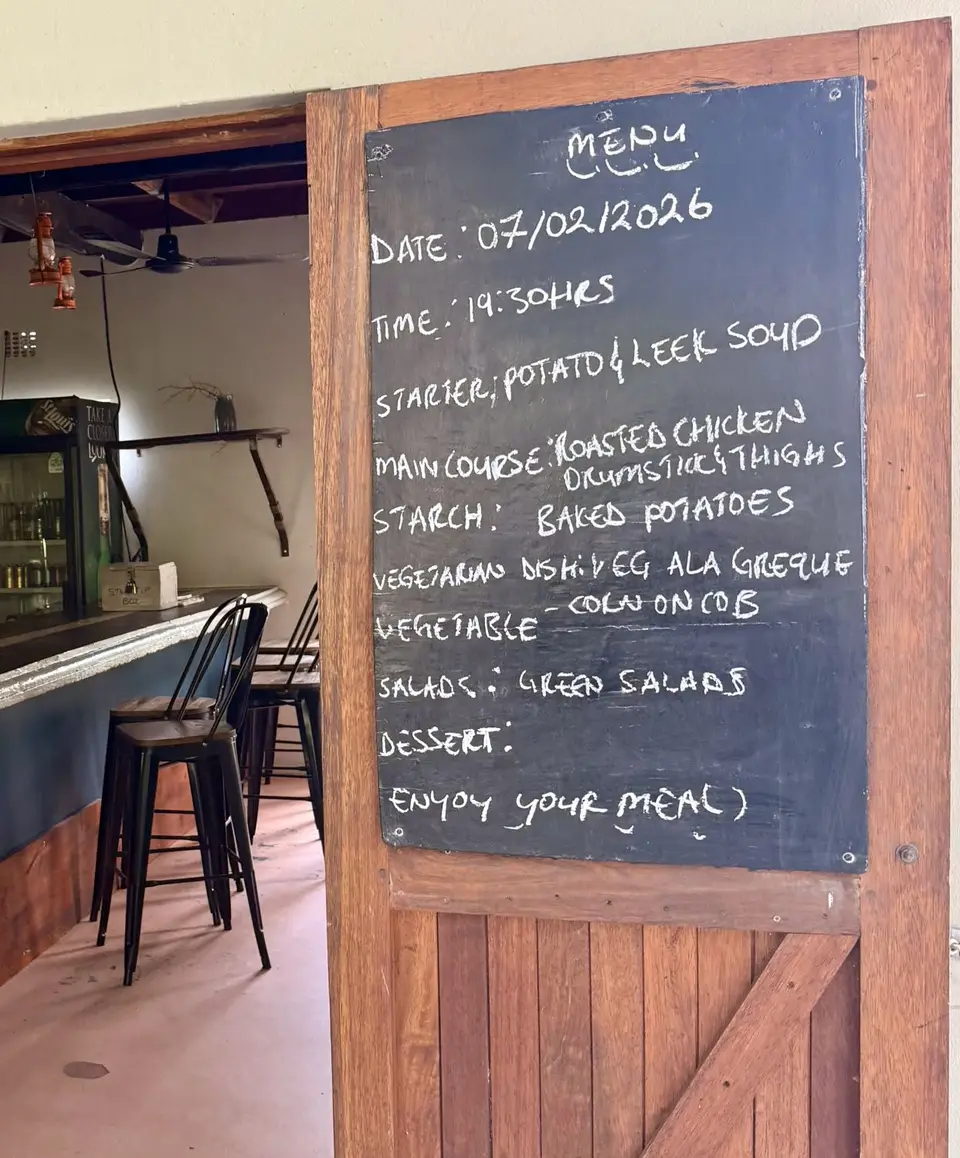 MENU
DATE: 07/02/2026
TIME: 19:30HRS
STARTER: POTATO & LEEK SOUP
MAIN COURSE: ROASTED CHICKEN
DRUMSTICK & THIGHS
STARCH: BAKED POTATOES
VEGETARIAN DISH: VEG ALA GREQUE
VEGETABLE - CORN ON COB
SALADS: GREEN SALADS
DESSERT:
ENYOY YOUR MEAL)
TAKE A
CLOSER
LOOK
BOX